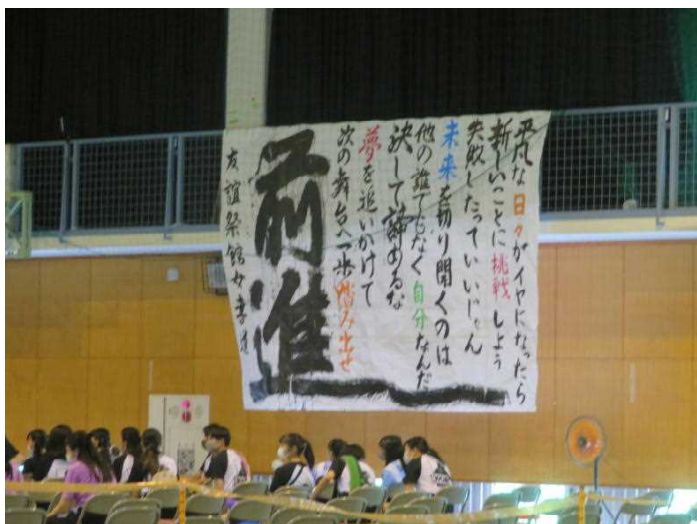 平凡な日々がイヤになったら
新しいことに挑戦しよう
失敗したっていいじゃん
未来を切り開くのは
他の誰でもなく自分なんだ
決して諦めるな
夢を追いかけて
次の舞台へ一歩踏み出せ
前進
友誼祭館女書道